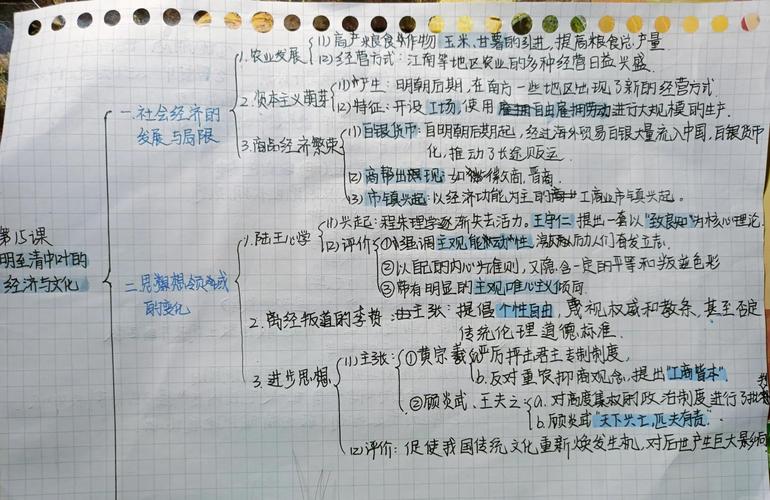 第15课
明至清中叶的
经济与文化
一.社会经济的
发展与局限
1.农业发展
(1)高产粮食作物 玉米、甘薯的引进,提高粮食总产量
(2)经营方式:江南等地区农业的多种经营日益兴盛.
2.资本主义萌芽
(1)产生:明朝后期,在南方一些地区出现了新的经营方式
(2)特征:开设工场,使用自由雇佣劳动进行大规模的生产.
3.商品经济繁荣
(1)白银货币:自明朝后期起,经过海外贸易白银大量流入中国,白银货币
化,推动了长途贩运
(2)商帮出现:如徽商,晋商.
(3)市镇兴起:以经济功能为主的工商业市镇兴起。
二.思想领域
的变化
1.陆王心学
(1)兴起:程朱理学逐渐失去活力.王守仁提出一套以"致良知"为核心理论.
(2)评价
①强调主观能动性,激励人们奋发立志.
②以自己的内心为准则,又隐含一定的平等和叛逆色彩
③带有明显的主观唯心主义倾向
2.离经叛道的李贽:主张:提倡个性自由,蔑视权威和教条,甚至否定
传统伦理道德标准.
3.进步思想
(1)主张:
①黄宗羲
严厉抨击君主专制制度,
b.反对重农抑商观念,提出"工商皆本".
②顾炎武、王夫之
a.对高度集权的政治制度进行了批
b.顾炎武"天下兴亡,匹夫有责."
(2)评价:促使我国传统文化重新焕发生机,对后世产生巨大影响